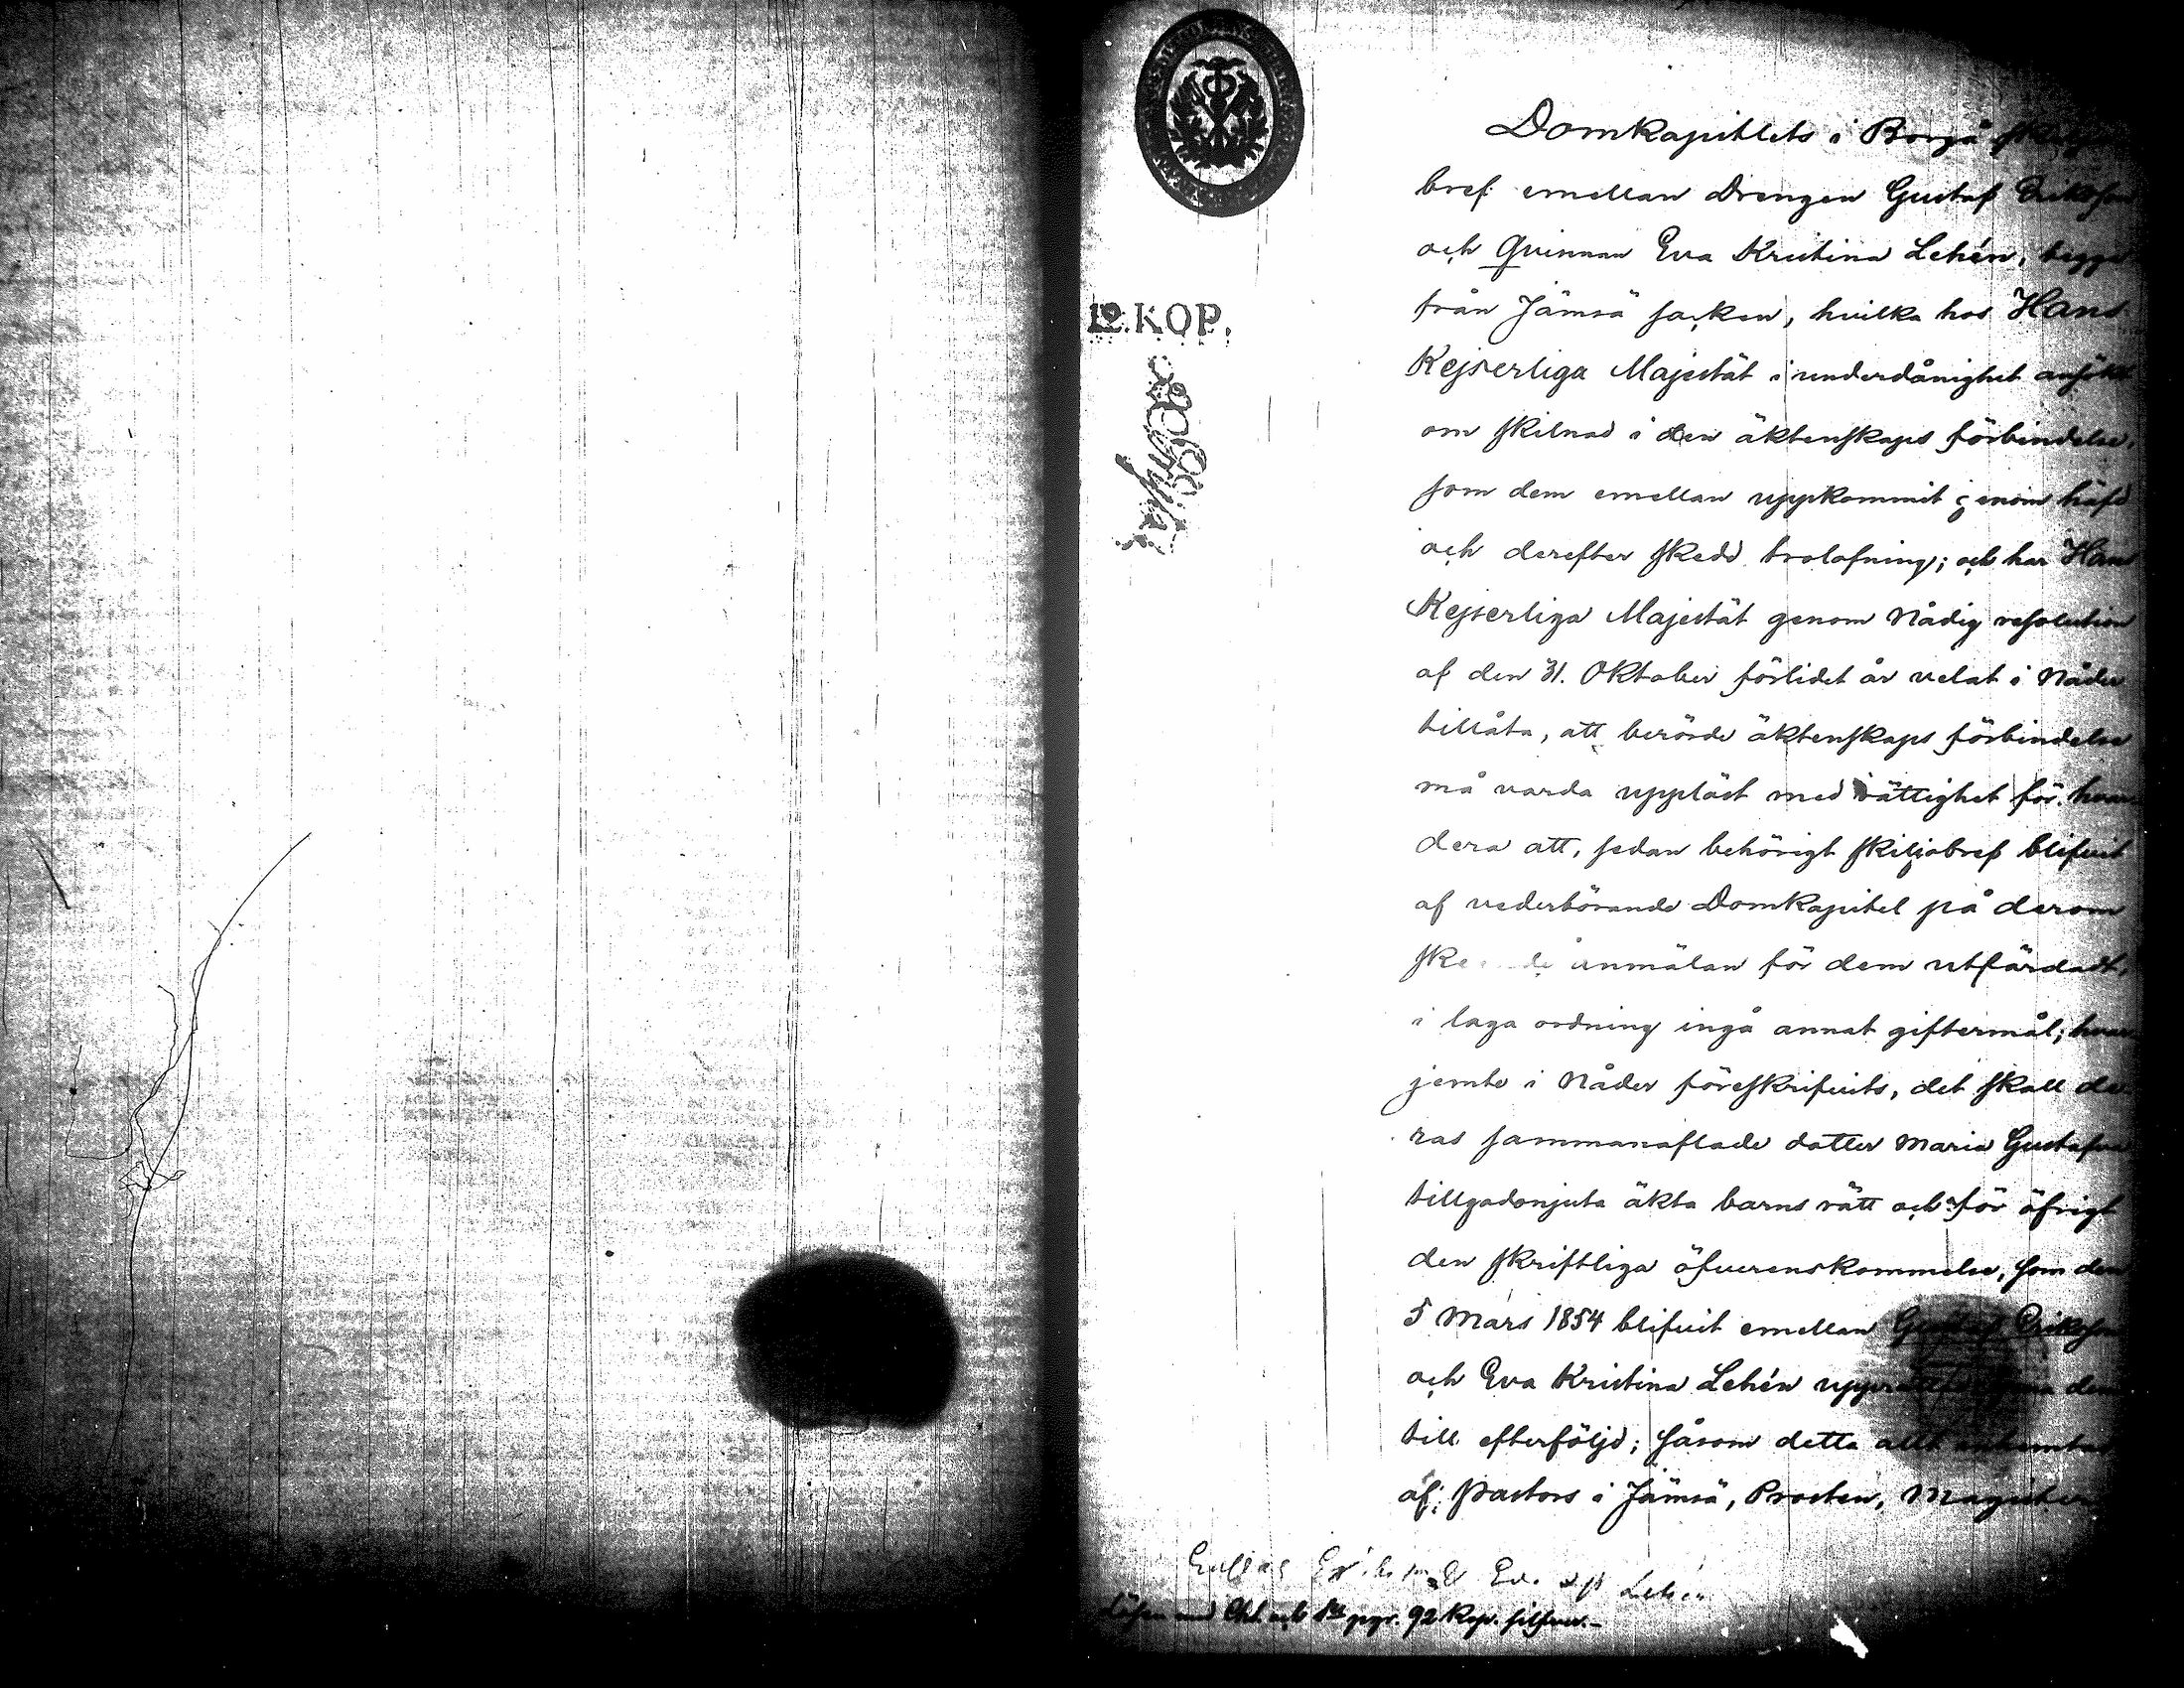 12.KOP.
Domkapitlets i Borgå skiljo
bref emellan Drengen Gustaf Eriksson
och Qvinnan Eva Kristina Lehén, begge
från Jämsä socken, hvilka hos Hans
Kejserliga Majestät i underdånighet ansökt
om skilnad i den äktenskaps förbindelse,
som dem emellan uppkommit genom häfd
och derefter skedd trolofning; och har Hans
Kejserliga Majestät genom Nådig resolution
af den 31. Oktober förlidet år velat i Nåder
tillåta, att berörde äktenskaps förbindelse
må varda upplöst med rättighet för hvar
dera att, sedan behörigt skiljobref blifvit
af vederbörande Domkapitel på derom
skeende anmälan för dem utfärdadt,
i laga ordning ingå annat giftermål; hvar
jemte i Nåder föreskrifvits, det skall de
ras sammanaflade dotter Maria Gustafva
tillgodonjuta äkta barns rätt och för öfrigt
den skriftliga öfverenskommelse, som den
5 Mars 1854 blifvit emellan Gustaf Eriksson
och Eva Kristina Lehén dem
till efterföljd; såsom detta allt
af Pastors i Jämsä, Prosten, Magister
Gustaf Eriks Eva Lehén
Lösen med och 92 kop. silfver.